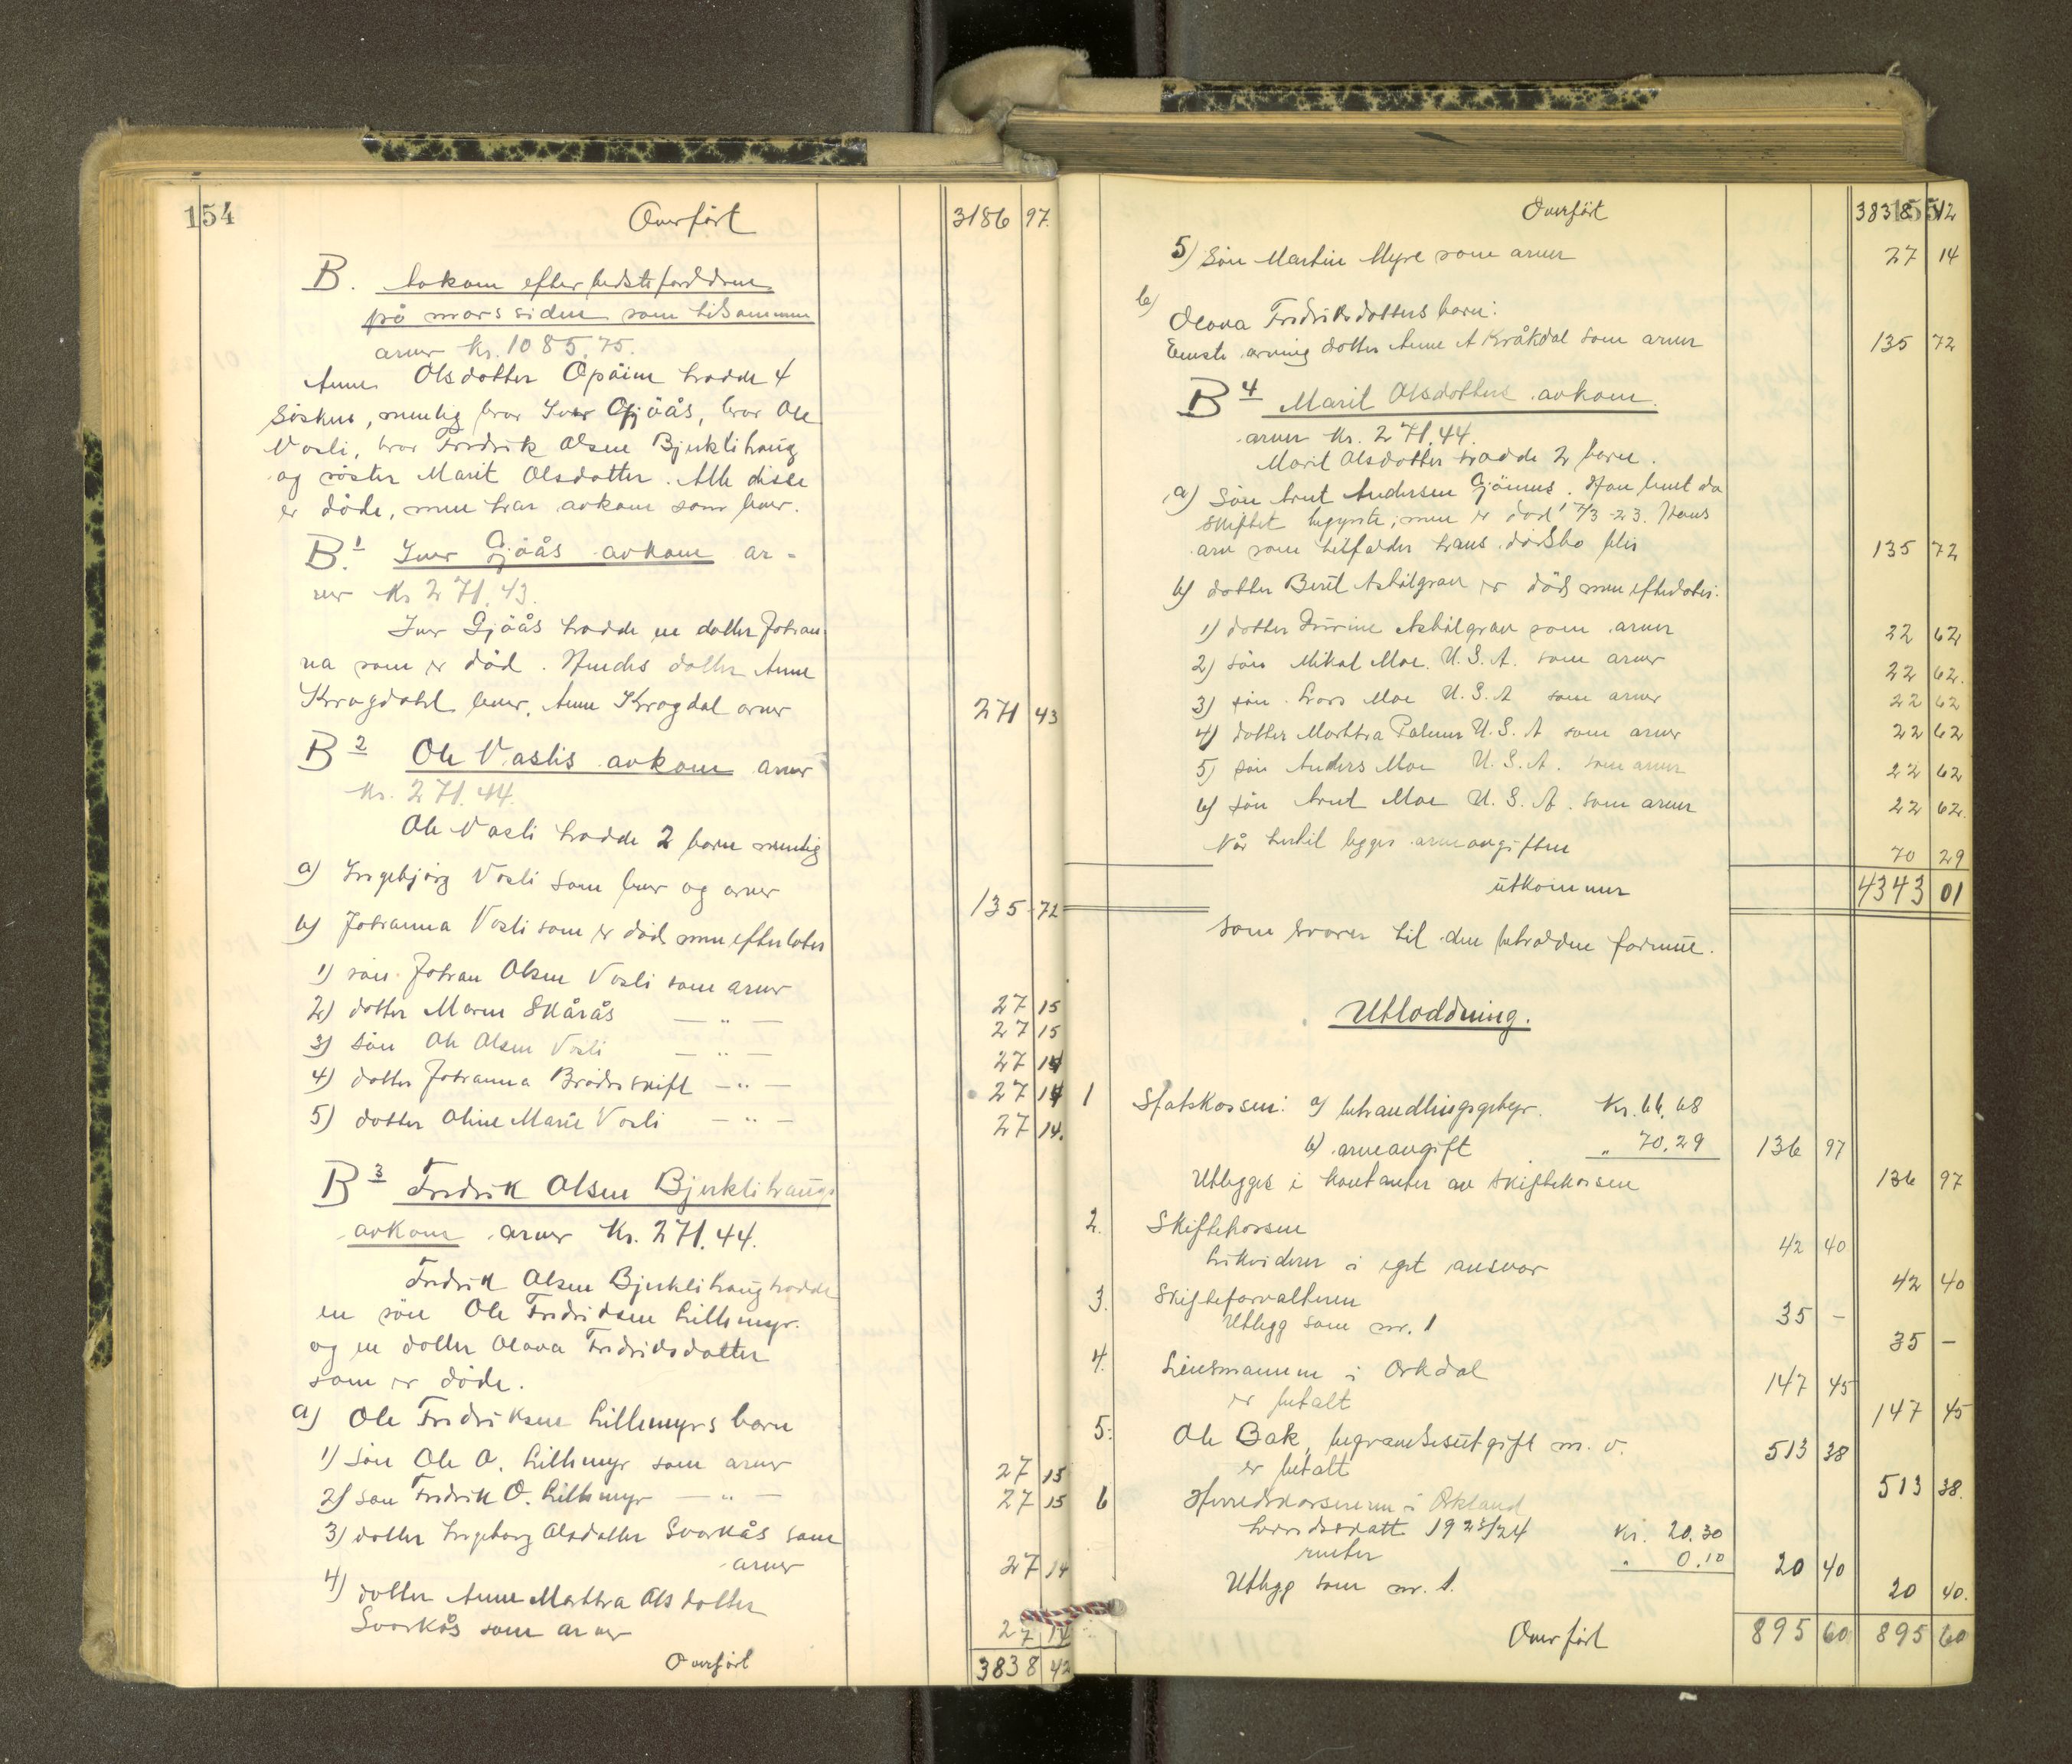 154
Overført 3186 97
B. Avkom efter besteforeldrene
på mors siden som tilsammen
arver kr. 1085.75.
Anne Olsdatter Opöien hadde 4
søsken, nemlig bror Iver Gjöås, bror Ole
Vasli, bror Fredrik Olsen Bjerklihaug
og søster Marit Olsdatter. Alle disse
er döde, men har avkom som lever.
B.1 Iver Gjöås avkom ar-
ver kr 271.43.
Iver Gjöås hadde en datter Johan
na som er död. Hendes datter Anne
Krogdahl lever. Anne Krogdal arver 271 43
B2 Ole Vaslis avkom arver
kr. 271.44.
Ole Vasli hadde 2 barn nemlig
a) Ingebjörg Vasli som lever og arver 135 72
b) Johanna Vasli som er död men efterlater
1) sön Johan Olsen Vasli som arver 27 15
2) datter Maren Skårås — " — 27 15
3) sön Ole Olsen Vasli — " — 27 14
4) datter Johanna Brödreskift — " — 27 14
5) datter Oline Marie Vasli — " — 27 14.
B3 Fredrik Olsen Bjerklihaugs
avkom arver kr. 271.44.
Fredrik Olsen Bjerklihaug hadde
en sön Ole Fredriksen Lillemyr
og en datter Olava Fredriksdatter
som er döde.
a) Ole Fredriksen Lillemyrs barn
1) sön Ole O. Lillemyr som arver 27 15
2) sön Fredrik O. Lillemyr — " — 27 15
3) datter Ingeborg Olsdatter Svorkås som
arver 27 14
4) datter Anne Marthra Olsdatter
Svorkås som arver 27 14
Overført 3838 42
155
Overført 3838 42
5) Sön Martin Myre som arver 27 14
b) Olava Fredriksdatters barn:
Eneste arving datter Anne A Kråkdal som arver 135 72
B4 Marit Olsdatters avkom.
arver kr. 271.44.
Marit Olsdatter hadde 2 barn.
a) Sön Arnt Andersen Gjönnes. Han levet da
skiftet begynte, men er död 17/3-23. Hans
arv som tilfalder hans dödsbo blir 135 72
b) datter Berit Asbölgrav er död men efterlater:
1) datter Asbölgrav som arver 22 62
2) sön Mikal Moe U.S.A. som arver 22 62.
3) sön Lars Moe U.S.A som arver 22 62
4) datter Marthra Palmer U.S.A som arver 22 62
5) sön Anders Moe U.S.A. som arver 22 62
6) sön Arnt Moe U.S.A. som arver 22 62.
Når hertil legges arveavgiften 70 29
utkommer 4343 01
som svarer til den beholdne formue.
Utloddning.
1 Statskassen: a) behandlingsgebyr. Kr. 66.68
b) arveavgift " 70.29 136 97
Utlegges i kontanter av skiftekassen 136 97
2. Skiftekassen 42 40
Likviderer i eget ansvar 42 40
3. Skifteforvalteren 35 -
Utlegg som nr. 1 35 -
4. Lensmannen i Orkdal 147 45
er betalt 147 45
5. Ole Bak, begravelsesutgift m.v. 513 38
er betalt 513 38.
6 Herredskassereren i Orkland
herredsskatt 1923/24 Kr. 20.30
renter " 0.10 20 40
Utlegg som nr. 1. 20 40.
Overført 895 60 895 60